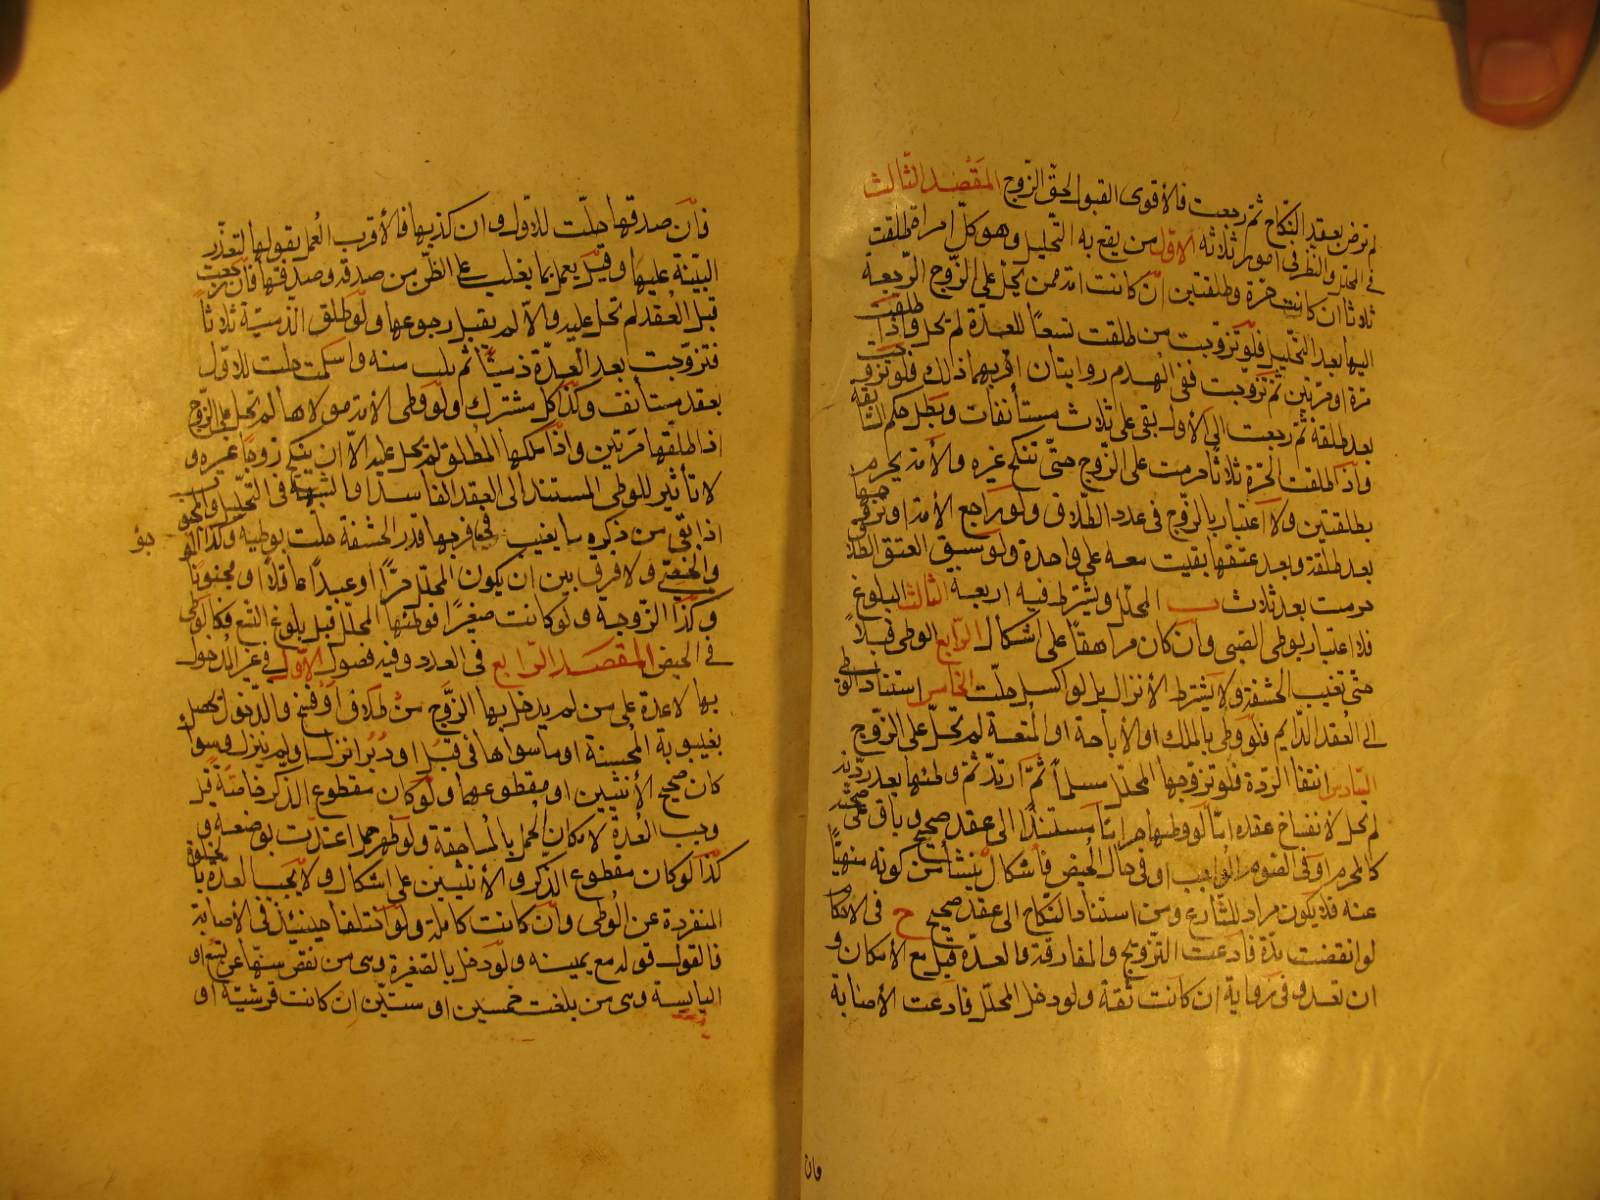 لم ترض بعقد النكاح ثم رجعت فالأقوى القبول لحق الزوج المقصد الثالث
في المحلل والنظر في امور ثلاثة الاول من يقع به التحليل وهو كل امراة طلقت
ثلاثا ان كانت حرة وطلقتين ان كانت امة ممن يحل على الزوج الرجعة
اليها بعد التحليل فلو تزوجت من طلقت تسعا للعدة لم تحل واذا طلقت
مرة او مرتين ثم تزوجت ففي الهدم روايتان اقربهما ذلك فلو تزوجت
بعد طلقة ثم رجعت الى الأول بقى على ثلاث مستأنفات وبطل حكم السابقة
واذا طلقت الحرة ثلاثا حرمت على الزوج حتى تنكح غيره والأمة يحرم
بطلقتين ولا اعتبار بالزوج في عدد الطلاق ولو راجع الأمة او تزوجها
بعد طلقة وبعد عتقها بقيت معه على واحدة ولو سبق العتق الطلاق
حرمت بعد ثلاث ب المحلل ويشترط فيه اربعة الثالث البلوغ
فلا اعتبار بوطى الصبي وان كان مراهقا على اشكال الرابع الوطى قبلا
حتى تغيب الحشفة ولا يشترط الأنزال بل لو اكسل حلت الخامس استناد الوطى
الى العقد الدايم فلو وطى بالملك او الأباحة او المتعة لم تحل على الزوج
السادس انتفا الردة فلو تزوجها المحلل مسلما ثم ارتد ثم وطئها بعد ردته
لم تحل لانفساخ عقده اما لو وطئها حراما مستندا الى عقد صحيح وباق على صحته
كالمحرم او في الصوم الواجب او في حال الحيض فأشكال ينشأ من كونه منهيا
عنه فلا يكون مراد للشارع ومن استناد النكاح الى عقد صحيح ح في الاحكام
لو انقضت مدة فادعت التزويج والمفارقة والعدة قبل مع الأمكان و
ان بعد وفي رواية ان كانت ثقة ولو دخل المحلل فادعت الأصابة
فان
فأن صدقها حلت للاول وان كذبها فالأقرب العمل بقولها لتعذر
البينة عليها وقيل يعمل بما يغلب على الظن من صدقه وصدقها فأن رجعت
قبل العقد لم تحل عليه والا لم يقبل رجوعها ولو طلق الذمية ثلاثا
فتزوجت بعد العدة ذميا ثم بانت منه واسلمت حلت للاول
بعقد مستأنف وكذا كل مشترك ولو وطى الأمة مولاها لم تحل على الزوج
اذا طلقها مرتين واذا ملكها المطلق لم تحل عليه الا ان ينكح زوجا غيره و
لا تأثير للوطى المستند الى العقد الفاسد او الشبهة في التحليل والمجبوب
اذا بقى من ذكره ما يغيب في فرجها قدر الحشفة حلت بوطيه وكذا الموجو
جو
والخصي ولا فرق بين ان يكون المحلل حرا او عبدا عاقلا او مجنونا
وكذا الزوجة ولو كانت صغيرا فوطئها المحلل قبل بلوغ التسع فكالوطى
في الحيض المقصد الرابع في العدد وفيه فصول الأول في غير المدخول
بها لا عدة على من لم يدخل بها الزوج من طلاق او فسخ والدخول يحصل
بغيبوبة الحشفة او ما سواها في قبل او دبر انزل او لم ينزل وسوا
كان صحيح الأنثيين او مقطوعهما ولو كان مقطوع الذكر خاصة قيل
وجب العدة لامكان الحمل بالمساحقة ولو ظهر حمل اعتدت بوضعه و
كذا لو كان مقطوع الذكر والأنثيين على اشكال ولا يجب العدة بالخلوة
المنفردة عن الوطى وان كانت كاملة ولو اختلفا حينئذ في الأصابة
فالقول قوله مع يمينه ولو دخل بالصغيرة وهي من نقص سنها عن تسع او
اليايسة وهي من بلغت خمسين او ستين ان كانت قرشية او